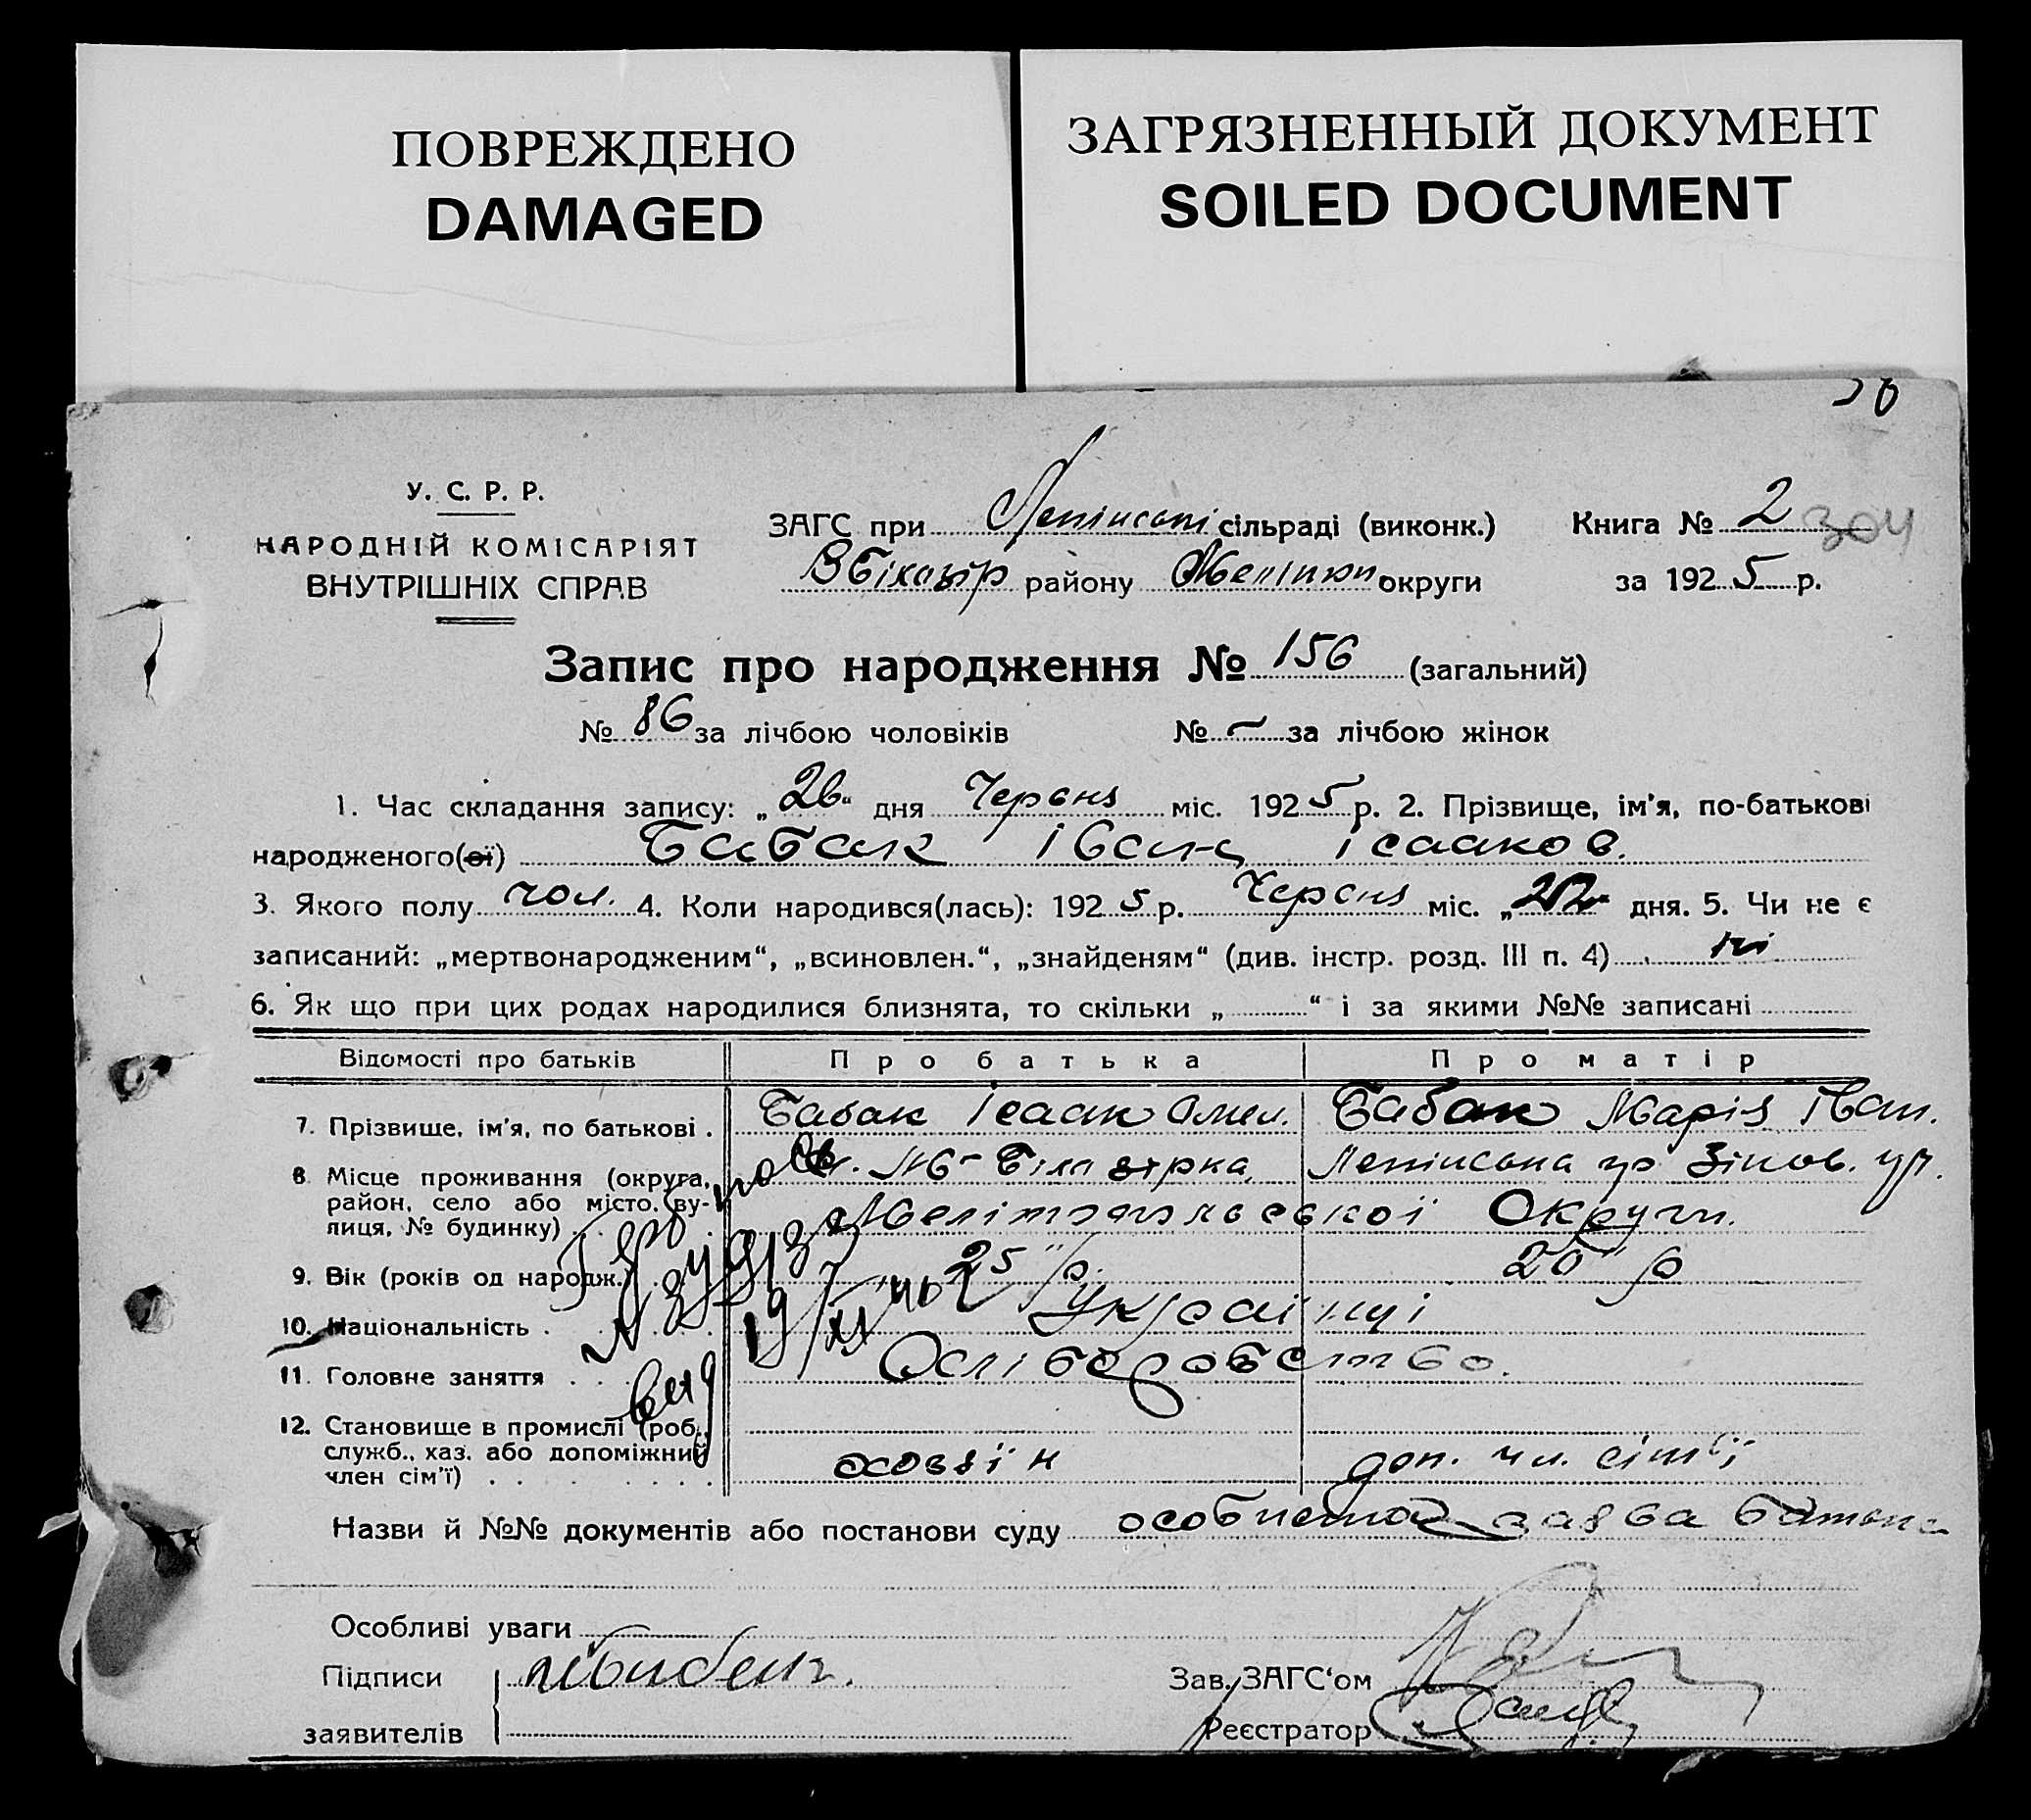 ПОВРЕЖДЕНО
DAMAGED
ЗАГРЯЗНЕННЫЙ ДОКУМЕНТ
SOILED DOCUMENT
У. С. Р. Р.
НАРОДНІЙ КОМІСАРІЯТ
ВНУТРІШНІХ СПРАВ
ЗАГС при Ленінські сільраді (виконк.)
району Меліноп округи
Книга № 2 304
за 1925 р.
Запис про народження № 156 (загальний)
№ 86 за лічбою чоловіків № – за лічбою жінок
1. Час складання запису: „26“ дня Червня міс. 1925 р. 2. Прізвище, ім'я, по-батькові
народженого(ої) Бабак Іван Ісааков.
3. Якого полу чол. 4. Коли народився(лась): 1925 р. Червня міс. „ “ дня. 5. Чи не є
записаний: „мертвонародженим“, „всиновлен.“, „знайденям“ (див. інстр. розд. III п. 4) ні
6. Як що при цих родах народилися близнята, то скільки „ “ і за якими №№ записані
Відомості про батьків Про батька Про матір
7. Прізвище, ім'я, по батькові . Бабак Ісаак Омел. Бабак Марія Іван.
8. Місце проживання (округа,
район, село або місто, ву-
лиця, № будинку) Білозірка, Округи.
9. Вік (років од народж.) 25 р. 20 р
10. Національність . Українці
11. Головне заняття . . . Хліборобство.
12. Становище в промислі (роб.,
служб., хаз. або допоміжний
член сім'ї) . . хозяїн доп. чл. сім'ї
Назви й №№ документів або постанови суду особиста заява батька
Особливі уваги
Підписи
заявителів
Зав. ЗАГС‘ом
Реєстратор